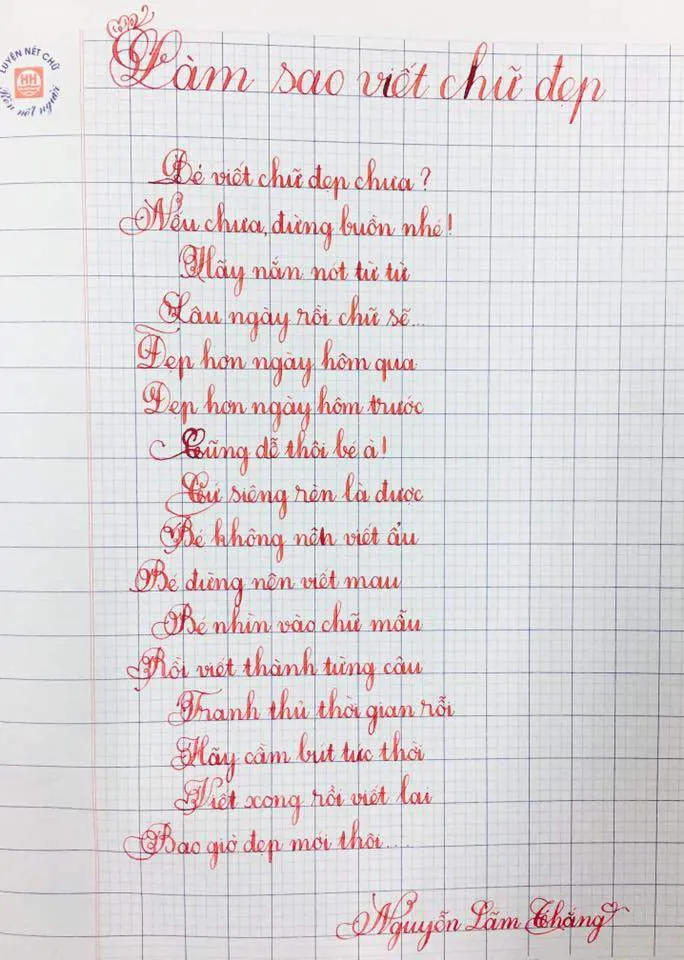 LUYỆN NÉT CHỮ
Rèn nết người
Làm sao viết chữ đẹp
Bé viết chữ đẹp chưa?
Nếu chưa, đừng buồn nhé!
Hãy nắn nót từ từ
Lâu ngày rồi chữ sẽ...
Đẹp hơn ngày hôm qua
Đẹp hơn ngày hôm trước
Cũng dễ thôi bé à!
Cứ siêng rèn là được
Bé không nên viết ẩu
Bé đừng nên viết mau
Bé nhìn vào chữ mẫu
Rồi viết thành từng câu
Tranh thủ thời gian rỗi
Hãy cầm bút tức thời
Viết xong rồi viết lại
Bao giờ đẹp mới thôi....
Nguyễn Lãm Thắng